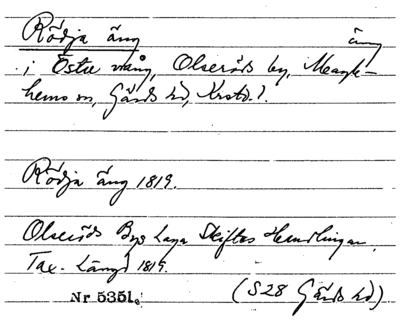 Rödja äng äng
i Östre vång, Olseröds by, Maglehems sn, Gärds hd, Krstd. l.
Rödja äng 1819.
Olseröds Bys Laga Skiftes Handlingar.
Tax. Längd 1819.
Nr 5351. (S28 Gärds hd)